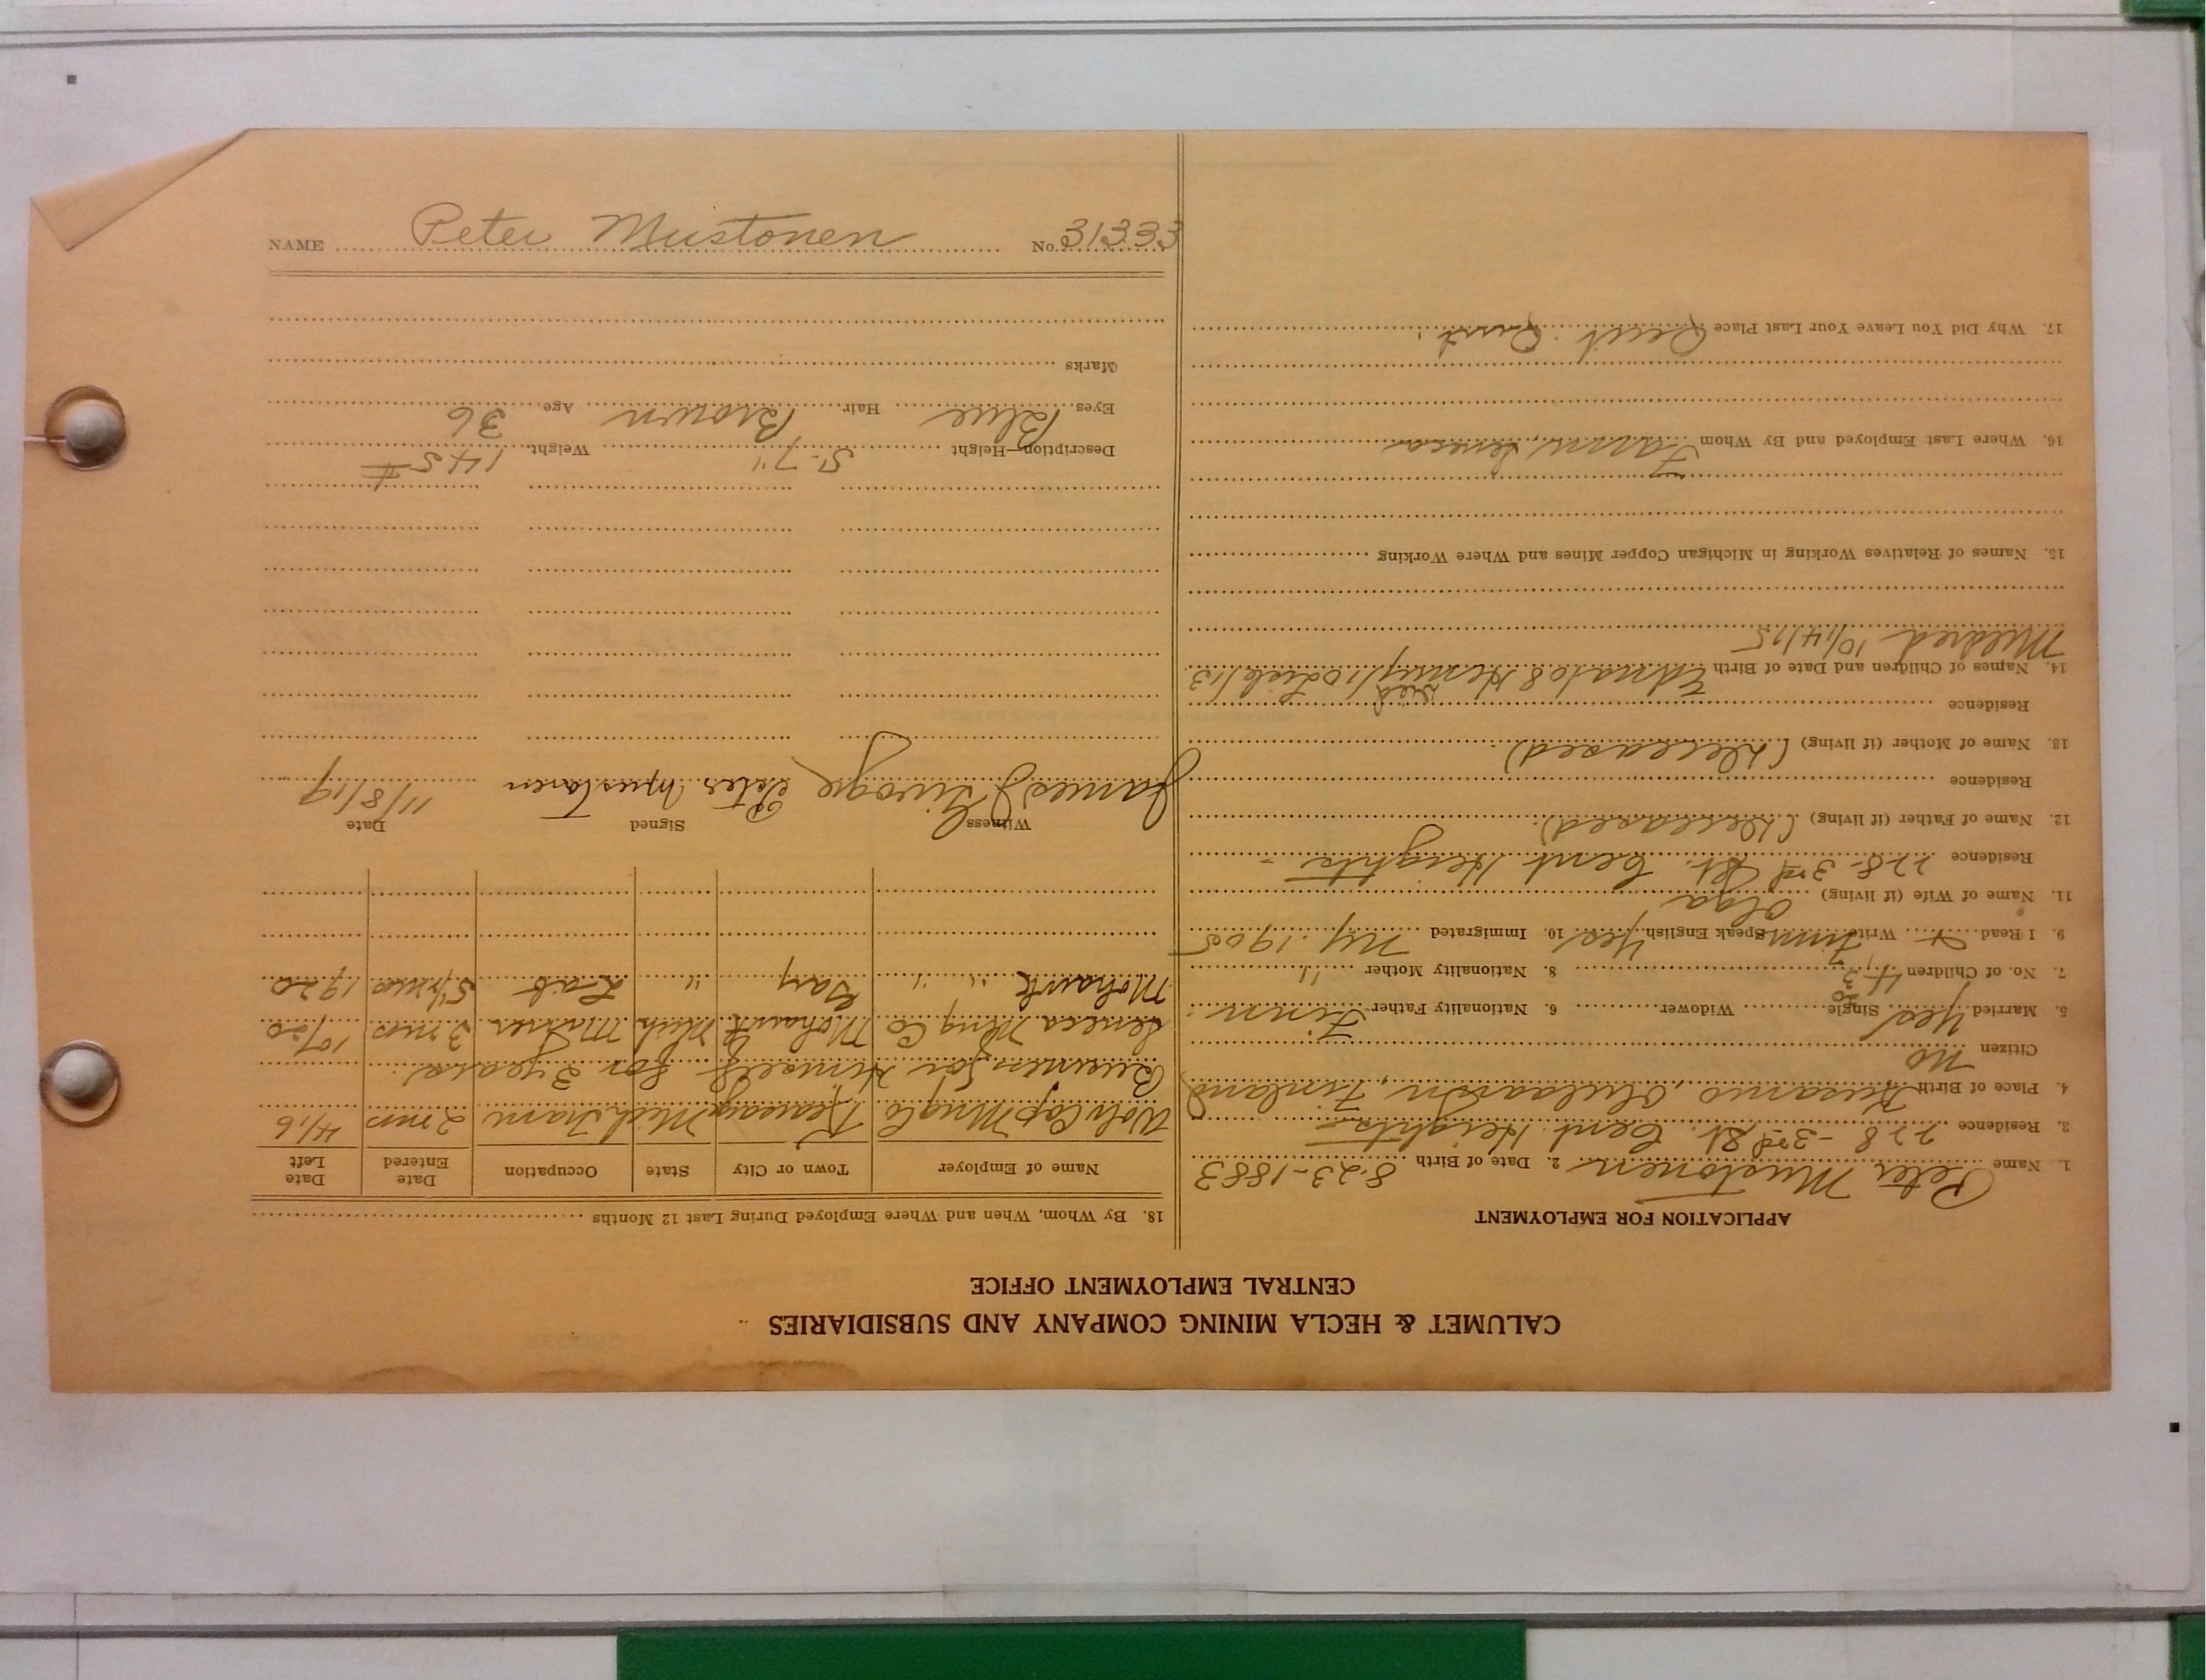 CALUMET & HECLA MINING COMPANY AND SUBSIDIARIES
CENTRAL EMPLOYMENT OFFICE
APPLICATION FOR EMPLOYMENT
1. Name Peter Mustonen 2. Date of Birth 8-23-1883
3. Residence 228-3rd St. Cent Heights
4. Place of Birth Kusamo, Finland
Citizen no
5. Married Yes Single Widower 6. Nationality Father Finn
7. No. of Children 4 8. Nationality Mother "
9. I Read + Write Finn Speak English Yes 10. Immigrated Ny. 1905
11. Name of Wife (if living) Olga
Residence 228-3rd St. Cent Heights -
12. Name of Father (if living) (Deceased)
Residence
13. Name of Mother (if living) (Deceased)
Residence
died
14. Names of Children and Date of Birth Edna/08 Henry/10 /13
Mildred 10/14/15
15. Names of Relatives Working in Michigan Copper Mines and Where Working
16. Where Last Employed and By Whom Farm, Seneca
17. Why Did You Leave Your Last Place Quit. Quit.
18. By Whom, When and Where Employed During Last 12 Months
Name of Employer Town or City State Occupation Date Entered Date Left
Wolv Cop Mng Co Kearsarge Mich Tram 2 mos 4/16
Business for Himself for 3 years.
Seneca Mng Co Mohawk Mich 3 mos 10/20
Mohawk " " Gay " Lab 5 1/2 mos 1920
Witness Signed Date
James Peter Mustonen 11/8/19
Description—Height 5'-7" Weight 145#
Eyes Blue Hair Brown Age 36
Marks
NAME Peter Mustonen No. 31333